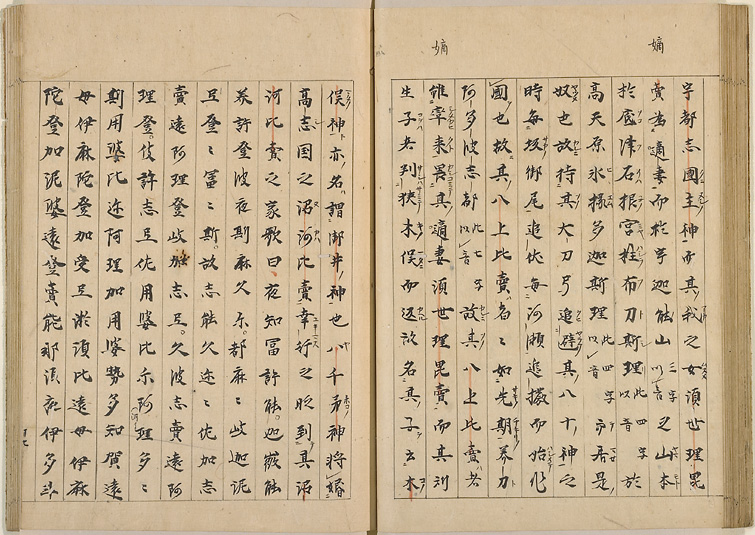 嫡
嫡
宇都志國主神而其我之女須世理毘
賣為適妻而於宇迦能山三字以音之山本
於底津石根宮柱布刀斯理此四字以音於
高天原氷椽多迦斯理此四字以音而居是
奴也故持其大刀弓追避其八十神之
時每坂御尾追伏每河瀬追撥而始作
國也故其八上比賣者〻如先期美刀
阿多波志都此七字以音故其八上比賣者
雖率來畏其適妻須世理毘賣而其所
生子者刾狹木俣而返故名其子云木
俣神亦名謂御井神也八千矛神将婚
高志国之沼河比賣幸行之時到其沼
河比賣之家歌曰夜知冨許能迦微能
美許登波夜斯麻久尓都麻〻岐迦泥
弖登〻冨〻斯故志能久迩〻佐加志
賣遠阿理登岐加志弖久波志賣遠阿
理登伎許志弖佐用婆比尓阿理多〻
斯用婆比迩阿理加用婆勢多知賀遠
母伊麻陀登加受弖淤須比遠母伊麻
陀登加泥婆遠登賣能那須夜伊多斗